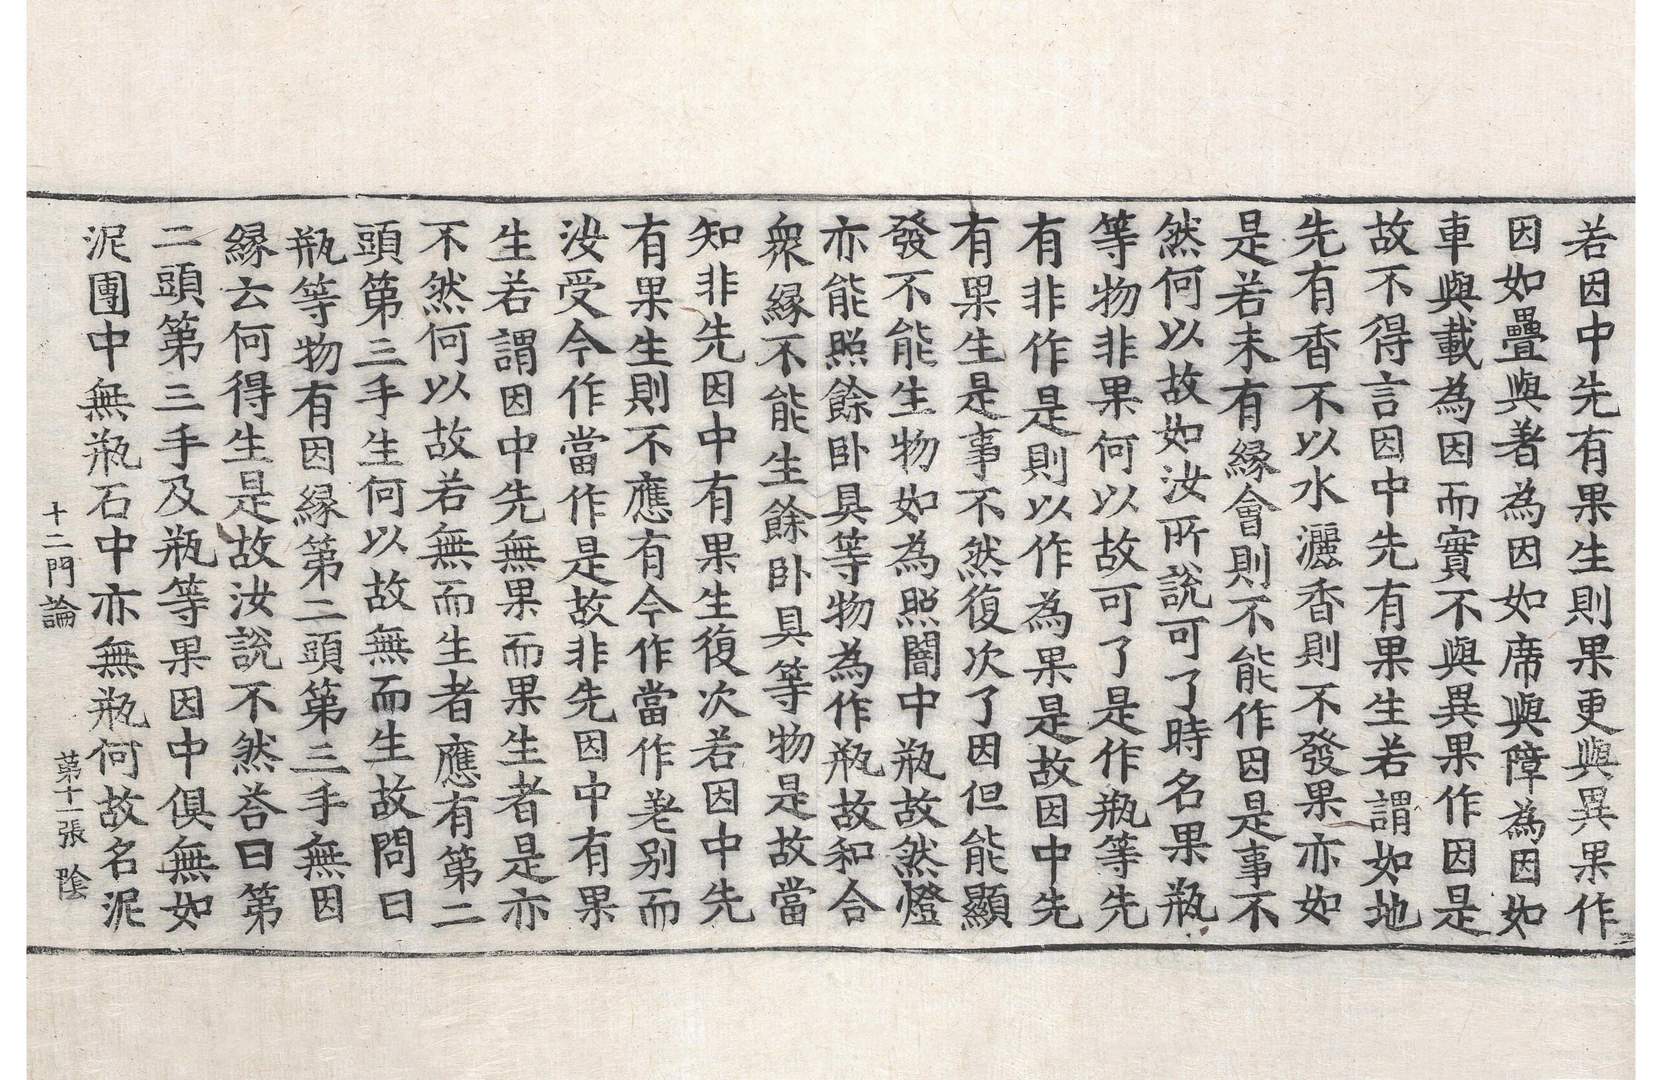 若因中先有果生則果更與異果作
因如疊與著為因如席與障為因如
車與載為因而實不與異果作因是
故不得言因中先有果生若謂如地
先有香不以水灑香則不發果亦如
是若未有緣會則不能作因是事不
然何以故如汝所說可了時名果瓶
等物非果何以故可了是作瓶等先
有非作是則以作為果是故因中先
有果生是事不然復次了因但能顯
發不能生物如為照闇中瓶故然燈
亦能照餘卧具等物為作瓶故和合
衆緣不能生餘卧具等物是故當
知非先因中有果生復次若因中先
有果生則不應有今作當作差別而
汝受今作當作是故非先因中有果
生若謂因中先無果而果生者是亦
不然何以故若無而生者應有第二
頭第三手生何以故無而生故問曰
瓶等物有因緣第二頭第三手無因
緣云何得生是故汝說不然荅曰第
二頭第三手及瓶等果因中俱無如
泥團中無瓶石中亦無瓶何故名泥
十二門論 第十一張 陰